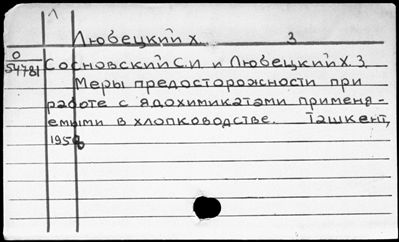 Любецкий Х. З
О
54781
Сосновский С.И. и Любецкий Х.З.
Меры предосторожности при
работе с ядохимикатами применя-
емыми в хлопководстве. Ташкент,